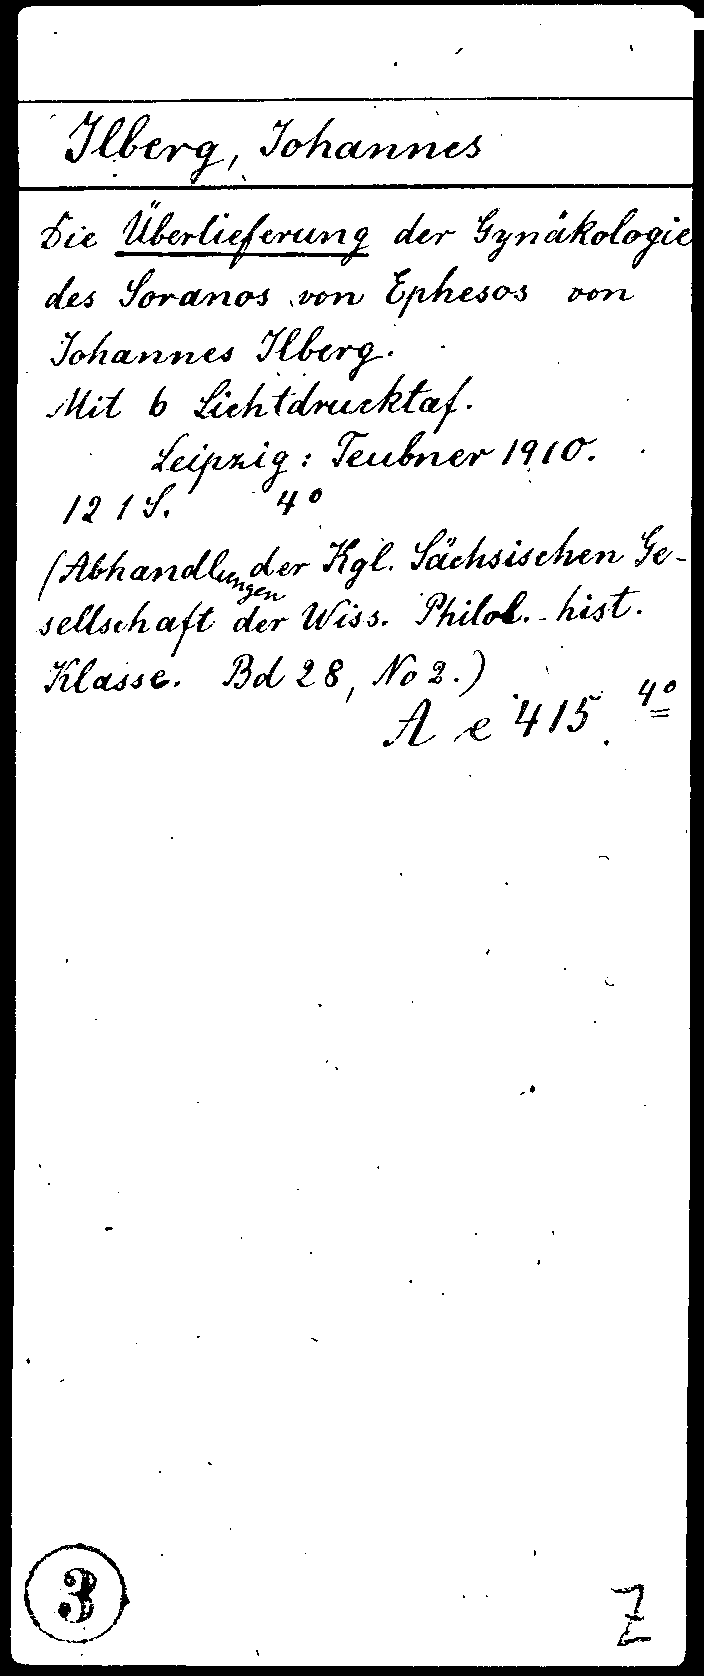 Ilberg, Johannes
Die Überlieferung der Gynäkologie
des Soranos von Ephesos von
Johannes Ilberg.
Mit 6 Lichtdrucktaf.
Leipzig: Teubner 1910.
121 S. 4°
(Abhandlungen der Kgl. Sächsischen Ge-
sellschaft der Wiss. Philol.-hist.
Klasse. Bd 28, No 2.)
A e 415. 4°
3 Z